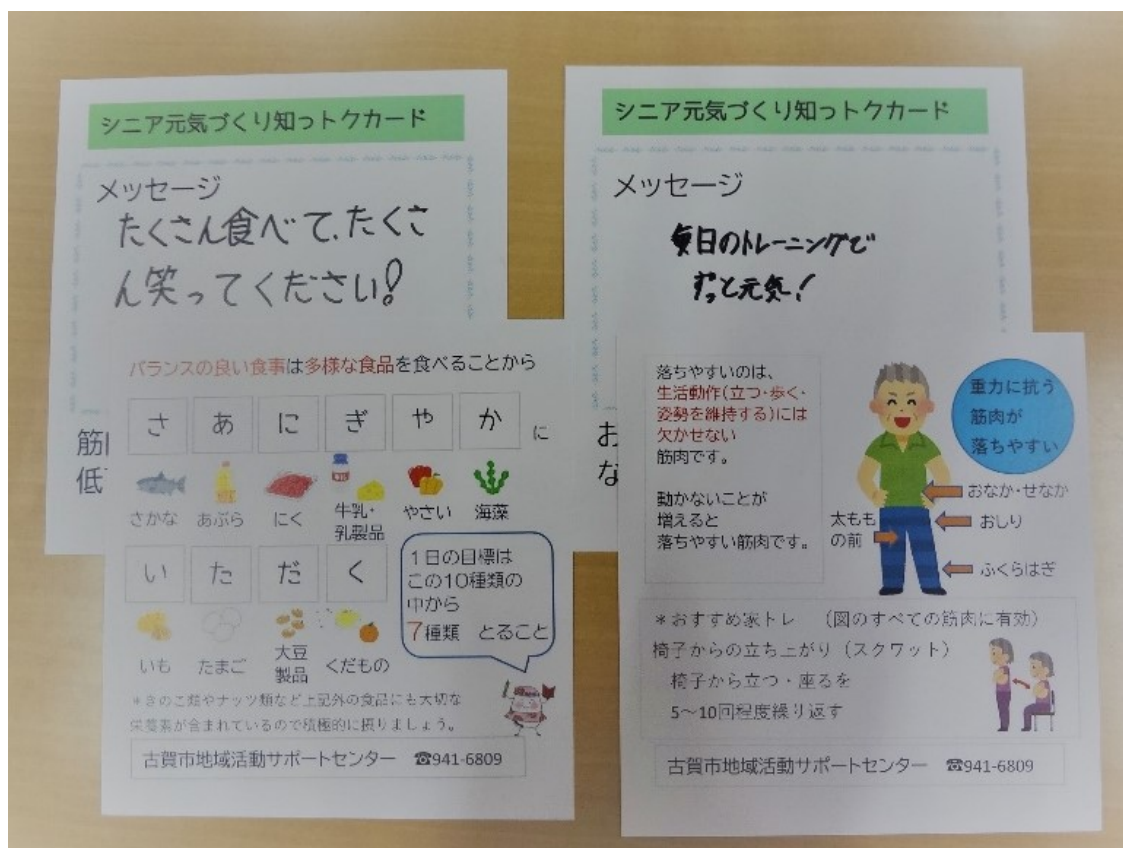 シニア元気づくり知っトクカード
メッセージ
たくさん食べて、たくさ
ん笑ってください!
筋
低
バランスの良い食事は多様な食品を食べることから
さ あ に ぎ や か に
さかな あぶら にく 牛乳・乳製品 やさい 海藻
い た だ く
いも たまご 大豆製品 くだもの
1日の目標は
この10種類の
中から
7種類 とること
*きのこ類やナッツ類など上記外の食品にも大切な
栄養素が含まれているので積極的に摂りましょう。
古賀市地域活動サポートセンター ☎941-6809
シニア元気づくり知っトクカード
メッセージ
毎日のトレーニングで
ずっと元気!
お
な
落ちやすいのは、
生活動作(立つ・歩く・
姿勢を維持する)には
欠かせない
筋肉です。
動かないことが
増えると
落ちやすい筋肉です。
重力に抗う
筋肉が
落ちやすい
おなか・せなか
おしり
太もも
の前
ふくらはぎ
*おすすめ家トレ (図のすべての筋肉に有効)
椅子からの立ち上がり(スクワット)
椅子から立つ・座るを
5~10回程度繰り返す
古賀市地域活動サポートセンター ☎941-6809